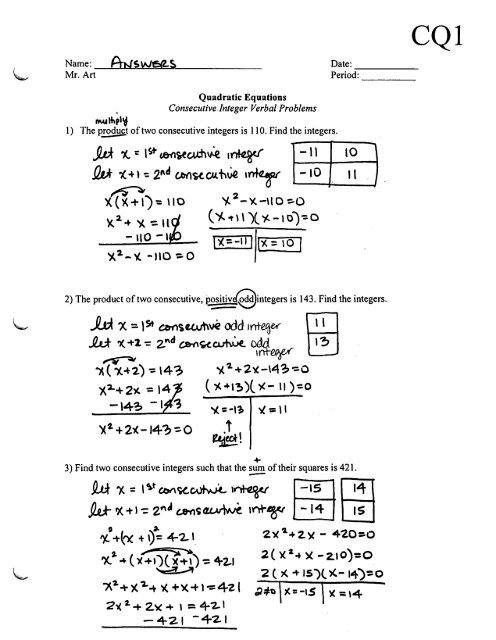 CQ1
Name: ANSWERS Date:
Mr. Art Period:
Quadratic Equations
Consecutive Integer Verbal Problems
multiply
1) The product of two consecutive integers is 110. Find the integers.
let x = 1st consecutive integer -11 10
let x+1 = 2nd consecutive integer -10 11
x(x+1) = 110 x²-x-110=0
x² + x = 110 (x+11)(x-10)=0
-110 -110 x=-11 x=10
x²-x-110=0
2) The product of two consecutive, positive odd integers is 143. Find the integers.
let x = 1st consecutive odd integer 11
let x+2 = 2nd consecutive odd integer 13
x(x+2) = 143 x²+2x-143=0
x²+2x = 143 (x+13)(x-11)=0
-143 -143 x=-13 x=11
x²+2x-143=0 Reject!
+
3) Find two consecutive integers such that the sum of their squares is 421.
let x = 1st consecutive integer -15 14
let x+1 = 2nd consecutive integer -14 15
x²+(x+1)²=421 2x²+2x-420=0
x²+(x+1)(x+1)=421 2(x²+x-210)=0
x²+x²+x+x+1=421 2(x+15)(x-14)=0
2x²+2x+1=421 2≠0 x=-15 x=14
-421 -421